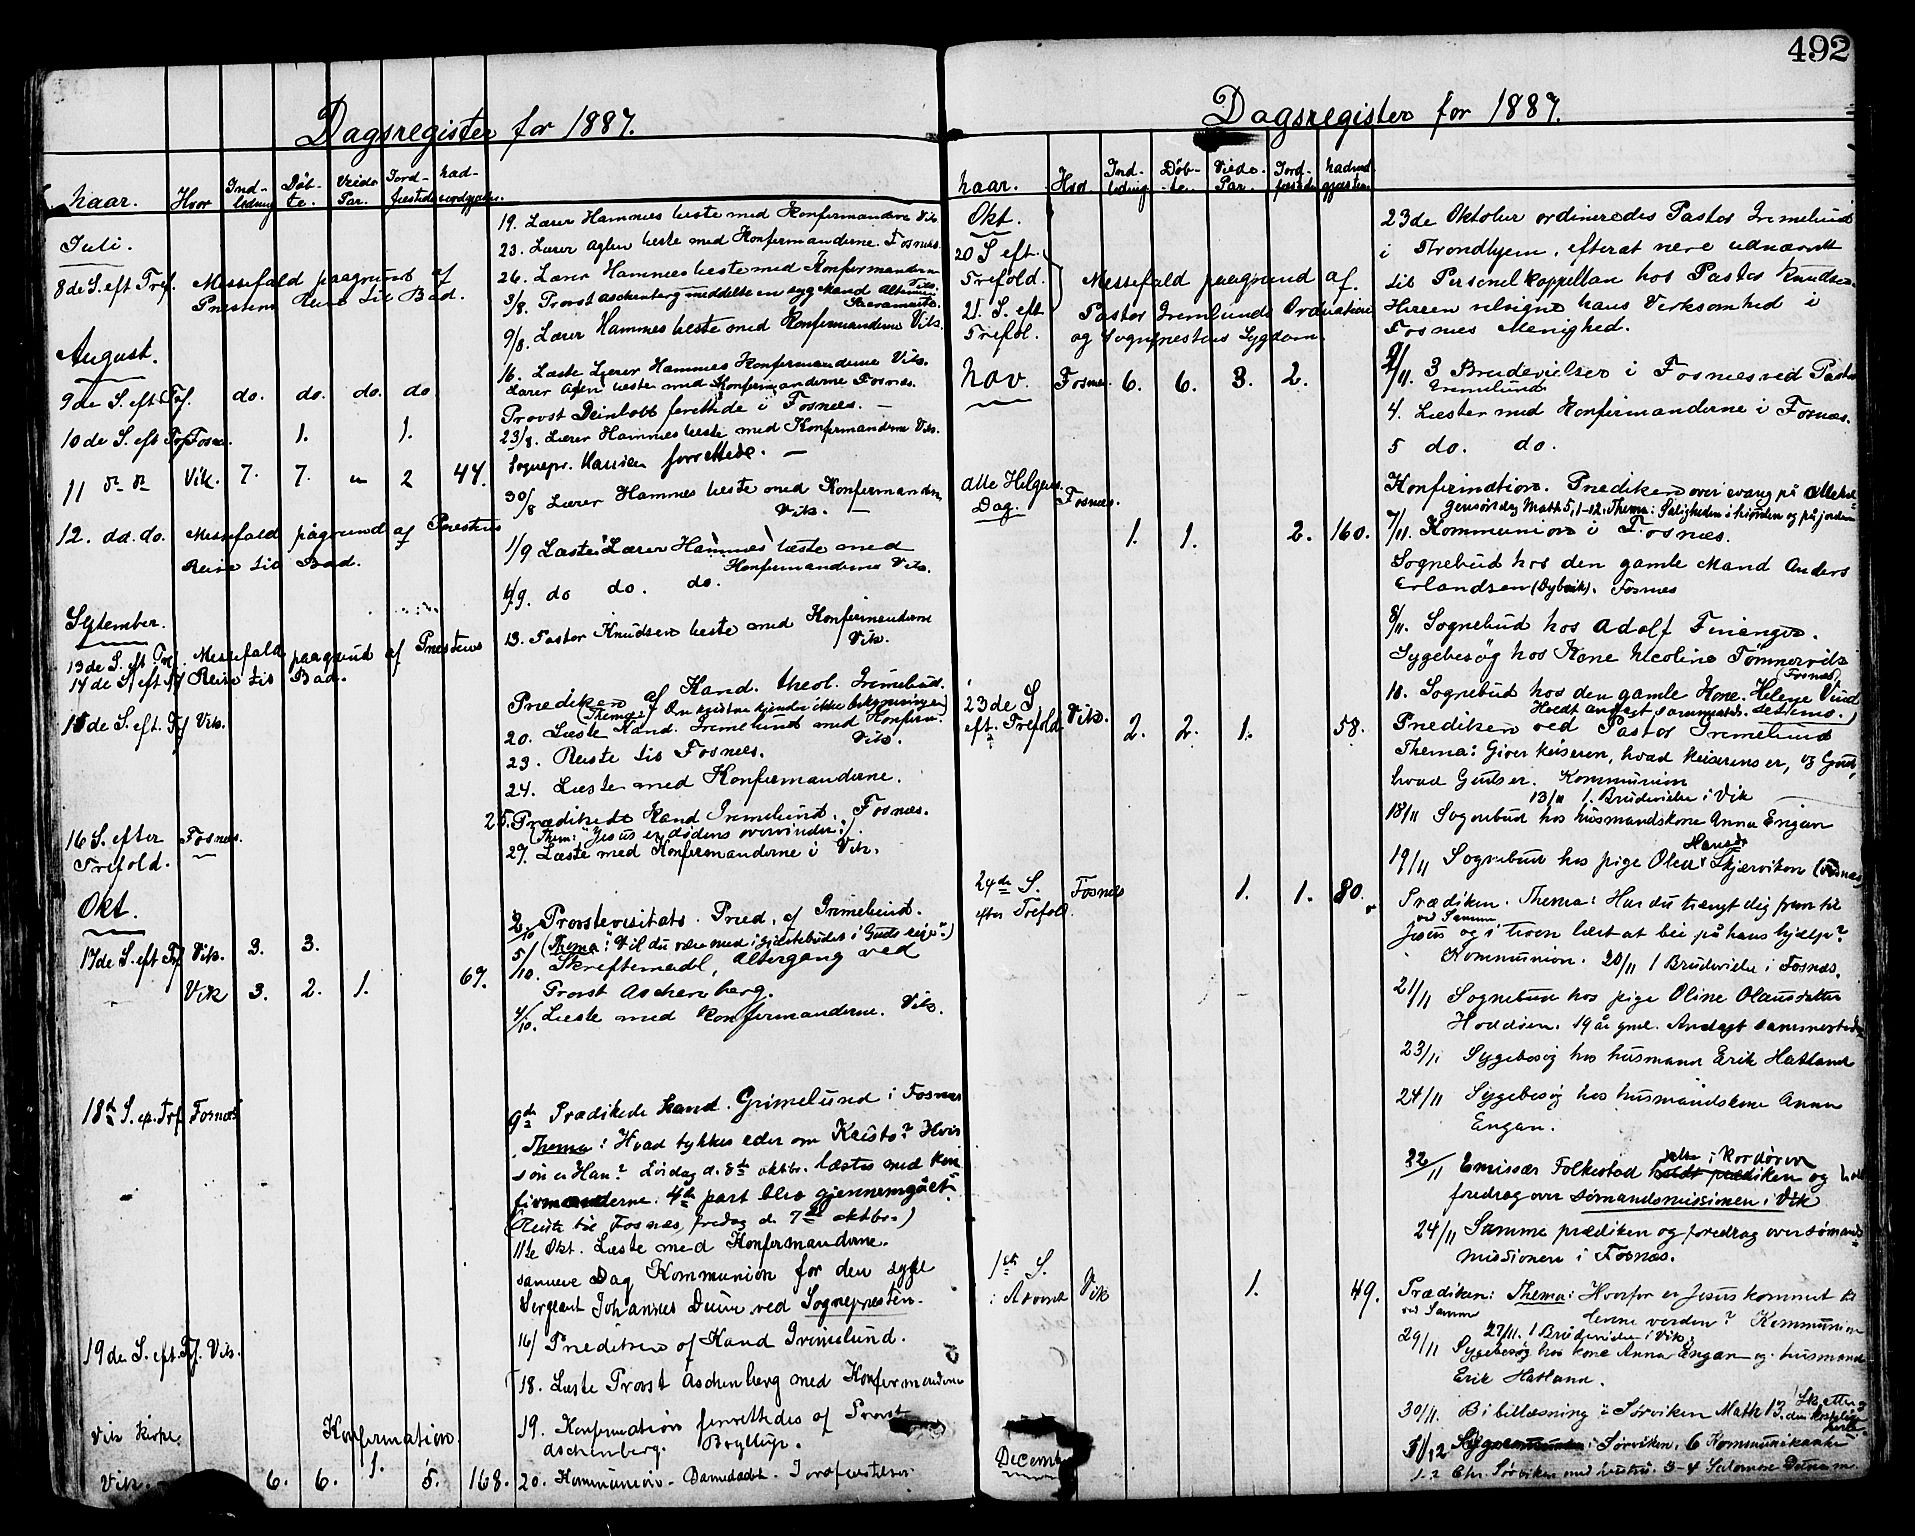 492
Dagsregister for 1887.
Naar. Hvor Ind-ledning Døb-te. Viede Par. Jord-fæstede Nad-verdgjester.
Juli.
8de S. eft Tref. Messefald paagrund af
Prestens Reise til Bad.
August.
9de S. eft Tref. do. do. do. do.
10de S. eft Tref Fosnæs. 1. 1.
11 Vik. 7. 7. „ 2 44.
12. do. do. Messefald pågrund af Prestens
Reise til Bad.
September.
13de S. eft Tref. Messefald paagrund af Prestens
14de S. eft Tref Reise til Bad.
15de S. eft. Tref Vik.
16 S. efter Fosnæs.
Trefold.
Okt.
17de S. eft Tref Vik. 3. 3.
Vik 3. 2. 1. 67.
18de S. ep. Tref Fosnæs
19de S. eft. Tref. Vik.
Vik Kirke. Konfirmation.
Vik. 6. 6. 1. 5. 168.
19. Lærer Hammes læste med Konfermanderne Vik
23. Lærer Aglen læste med Konfermanderne. Fosnæs.
26. Lærer Hammes læste med Konfermanderne
Vik.
3/8. Provst Aschenberg meddelte en syg Mand Alterens
Sacramente.
9/8. Lærer Hammes læste med Konfermanderne Vik.
16. Læste Lærer Hammes Konfermanderne Vik.
Lærer Aglen læste med Konfermanderne Fosnæs.
Provst Deinboll forettede i Fosnæs. —
23/8. Lærer Hammes læste med Konfermanderne Vik.
Sognepr. Hansen forrettede. —
30/8 Lærer Hammes læste med Konfermanderne
Vik.
1/9 Læste Lærer Hammes læste med
Konfermanderne Vik.
6/9. do do. do.
13. Pastor Knudsen læste med Konfermanderne
Vik.
Prediken af Kand. theol. Grimelund.
20. Læste Kand. Grimelund med Konferm.
Vik.
23. Reiste til Fosnæs.
24. Læste med Konfermanderne.
25. Prædikede Kand Grimelund. Fosnæs.
(Thema: "Jesus er dødens overvinder".)
27. Læste med Konfermanderne i Vik.
2/10 Provstevisitats. Præd. af Grimelund.
(Thema: Vil du være med i gjæstebudet i Guds rige?)
5/10. Skriftemaal, Altergang ved
Provst Aschenberg.
4/10. Læste med Konfermanderne. Vik.
9de Prædikede Kand. Grimelund i Fosnæs
Thema: Hvad tykkes eder om Kristo? Hvis
søn er Han? Lørdag d. 8de oktbr. læstes med kon
firmanderne. 4de part blev gjennemgået.
(Reiste til Fosnæs, fredag d. 7de oktbr.)
11te Okt. Læste med Konfermanderne.
samme Dag Kommunion for den syge
Sergeant Johannes Duun ved Sognepresten.
16/ Prediken af Kand Grimelund.
18. Læste Provst Aschenberg med Konfermanderne
19. Konfermation forrettedes af Provst
Aschenberg. Bryllup.
20. Kommunion - Barnedaab. Jordfæstelser
Dagsregister for 1887.
Naar. Hvor Ind-ledning Døb-te. Viede Par. Jord-fæstede Nadverd-gjæster.
Okt.
20 S. eft
Trefold. Messefald paagrund af
21. S. eft Pastor Grimlunds Ordination
Trefol. og Sogneprestens Sygdom.
Nov. Fosnæs. 6. 6. 3. 2.
Alle Helgens Fosnæs.
Dag. 1. 1. 2. 160.
23de S
eft. Trefold Vik. 2. 2. 1. 58.
24de S. Fosnæs 1. 1. 80.
efter Trefold.
1ste S.
i Advent Vik 1. 49.
December
23de Oktober ordineredes Pastor Grimelund
i Trondhjem, efterat være udnævnt
til Personelkappellan hos Pastor Knudsen.
Herren velsigne hans Virksomhed i
Fosnæs Menighed.
2/11. 3 Brudevielser i Fosnæs ved Pastor
Grimelund
4. Læster med Konfirmanderne i Fosnæs.
5 do. do.
Konfirmation. Prediken over evang. på Allehel
gensøndag Matth 5, 1-12. Thema: Saligheden i himlen og på jorden
7/11. Kommunion i Fosnæs.
Sognebud hos den gamle Mand Anders
Erlandsen (Dybvik). Fosnæs
8/11. Sognebud hos Adolf Finanger.
Sygebesøg hos Kone Nicoline Tømmervik
(Fosnæs)
10. Sognebud hos den gamle Kone. Helene
Holdt andagt sammesteds.
Prediken ved Pastor Grimelund
Thema: Giver keiseren, hvad keiserens er, og Gud,
hvad Guds er. Kommunion
13/11 1. Brudevielse i Vik
18/11 Sognebud hos husmandskone Anna Engan
19/11 Sognebud hos pige Olea Hansdr Skjærviken (Fosnæs)
Prædiken. Thema: Har du trængt dig frem til
ved Samme
Jesus og i troen lært at bie på hans hjælp?
Kommunion. 20/11 1 Brudevielse i Fosnæs.
21/11 Sognebud hos pige Oline Olausdatter
Hoddøen. 19 år gml. Andagt sammesteds
23/11 Sygebesøg hos husmand Erik Hatland
24/11 Sygebesøg hos husmandskone Anna
Engan.
22/11 Emissær Folkestad prædiken og holdt
foredrag over sømandsmissionen i Vik
24/11 Samme prædiken og foredrag over sømands
missionen i Fosnæs.
Prædiken: Thema: Hvorfor er Jesus kommet til
ved Samme denne verden? Kommunion
27/11. 1 Brudevielse i Vik.
29/11 Sygebesøg hos kone Anna Engan og husmand
Erik Hatland.
30/11. Bibellæsning i Sørviken Matth 13.
5/12 i Sørviken. 6 Kommunikanter
1-2 Chr. Sørviken med hustru. 3-4 Salomon